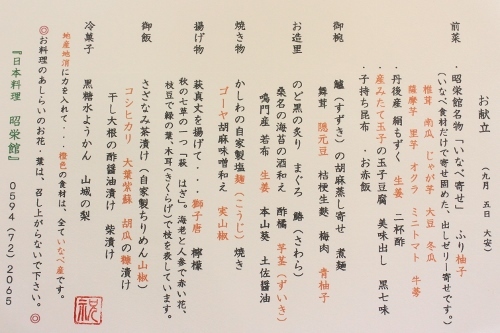 お献立　（九月　五日　大安）
前菜　・昭栄館名物「いなべ寄せ」　ふり柚子
（いなべ食材だけで寄せ固めた、出しゼリー寄せです。）
椎茸　南瓜　じゃが芋　大豆　冬瓜
薩摩芋　里芋　オクラ　ミニトマト　牛蒡
・丹後産　絹もずく　生姜　二杯酢
・産みたて玉子の玉子豆腐　美味出し　黒七味
・子持ち昆布　・お赤飯
御椀　鱸（すずき）の胡麻蒸し寄せ　煮麺
舞茸　隠元豆　桔梗生麩　梅肉　青柚子
お造里　のど黒の炙り　まぐろ　鰆（さわら）
桑名の海苔の酒和え　酢橘　芋茎（ずいき）
鳴門産　若布　生姜　本山葵　土佐醤油
焼き物　かしわの自家製塩麹（こうじ）焼き
ゴーヤ胡麻味噌和え　実山椒
揚げ物　萩真丈を揚げて・・・獅子唐　檸檬
秋の七草の一つ「萩　はぎ」。海老と人参で赤い花、
枝豆で緑の葉、木耳（きくらげ）で枝を表しています。
御飯　さざなみ茶漬け（自家製ちりめん山椒）
コシヒカリ　大葉紫蘇　胡瓜の糠漬け
干し大根の酢醤油漬け　柴漬け
冷菓子　黒糖水ようかん　山城の梨
地産地消に力を入れて・・・橙色の食材は、全ていなべ産です。
◎お料理のあしらいのお花、葉は、召し上がらないで下さい。◎
『日本料理　昭栄館』　０５９４（７２）２０６５
祝